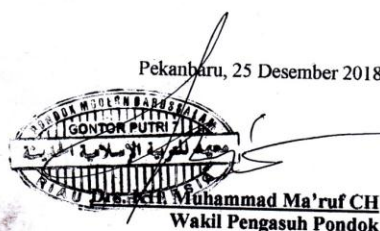 Pekanbaru, 25 Desember 2018
PONDOK MODERN DARUSSALAM
GONTOR PUTRI 7
RIAU
Drs. KH. Muhammad Ma'ruf CH
Wakil Pengasuh Pondok